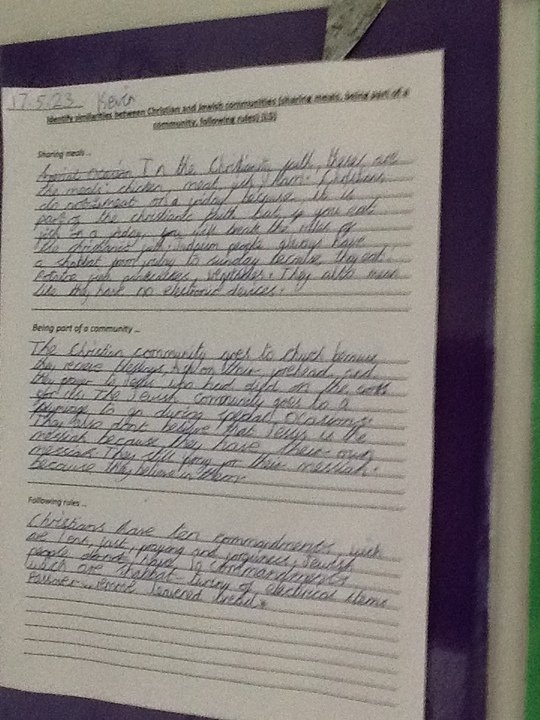 17.5.23 Kevin
Identify similarities between Christian and Jewish communities (sharing meals, being part of a
community, following rules) (LS)
Sharing meals ...
In the Christianity faith, these are
the meals: chicken, meat, fish, Christians
do not eat meat of a friday because, it is
part of the christianity faith but if you eat
fish on a friday, you will break the rules of
the christianity faith. Judaism people always have
a shabbat from friday to sunday because they eat
potatoe vegetables. They also
like they have no electronic devices.
Being part of a community ...
The Christian community goes to church because
they receive blessings on their forehead and
they prayer to Jesus who had died on the cross
for us. The Jewish community goes to a
to go during special occasions.
They also dont believe that Jesus is the
messiah because they have their own
messiah. They still for their messiah
because they believe in them
Following rules ...
Christians have ten commandments, which
are Lent, fast, praying and forgiveness, Jewish
people have 10 commandments
which are shabbat- of electrical items
Passover - bread.